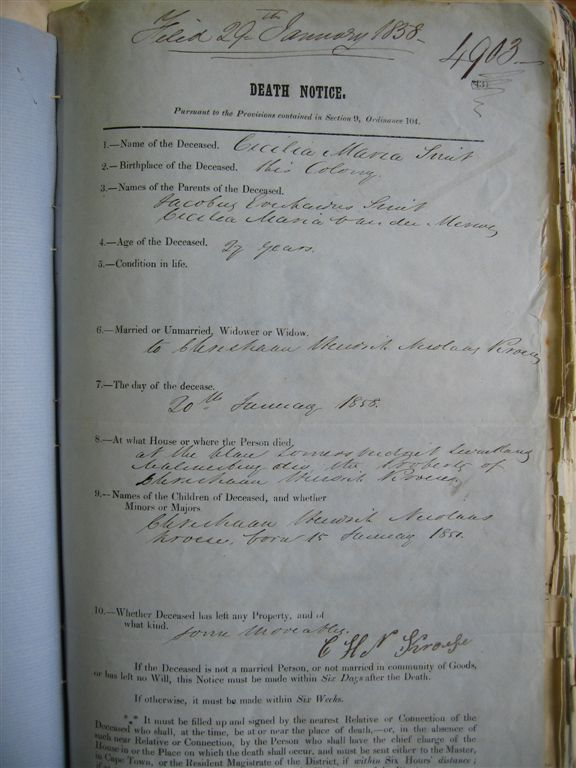 Filed 29th January 1858
4903
DEATH NOTICE.
Pursuant to the Provisions contained in Section 9, Ordinance 104.
1.—Name of the Deceased. Cecilia Maria Smit
2.—Birthplace of the Deceased. this Colony.
3.—Names of the Parents of the Deceased.
Jacobus Everhardus Smit
Cecilia Maria van der Merwe
4.—Age of the Deceased. 27 years.
5.—Condition in life.
6.—Married or Unmarried, Widower or Widow.
to Christiaan Hendrik Nicolaas Kroese
7.—The day of the decease.
20th January 1858.
8.—At what House or where the Person died.
at the place
Malmesbury the property of
Christiaan Hendrik Kroese
9.—Names of the Children of Deceased, and whether
Minors or Majors
Christiaan Hendrik Nicolaas
Kroese, born 15 January
10.—Whether Deceased has left any Property, and of
what kind. some moveables.
C H N Kroese
If the Deceased is not a married Person, or not married in community of Goods,
or has left no Will, this Notice must be made within Six Days after the Death.
If otherwise, it must be made within Six Weeks.
*** It must be filled up and signed by the nearest Relative or Connection of the
Deceased who shall, at the time, be at or near the place of death,—or, in the absence of
such near Relative or Connection, by the Person who shall have the chief charge of the
House in or the Place on which the death shall occur, and must be sent either to the Master,
in Cape Town, or the Resident Magistrate of the District, if within Six Hours' distance;